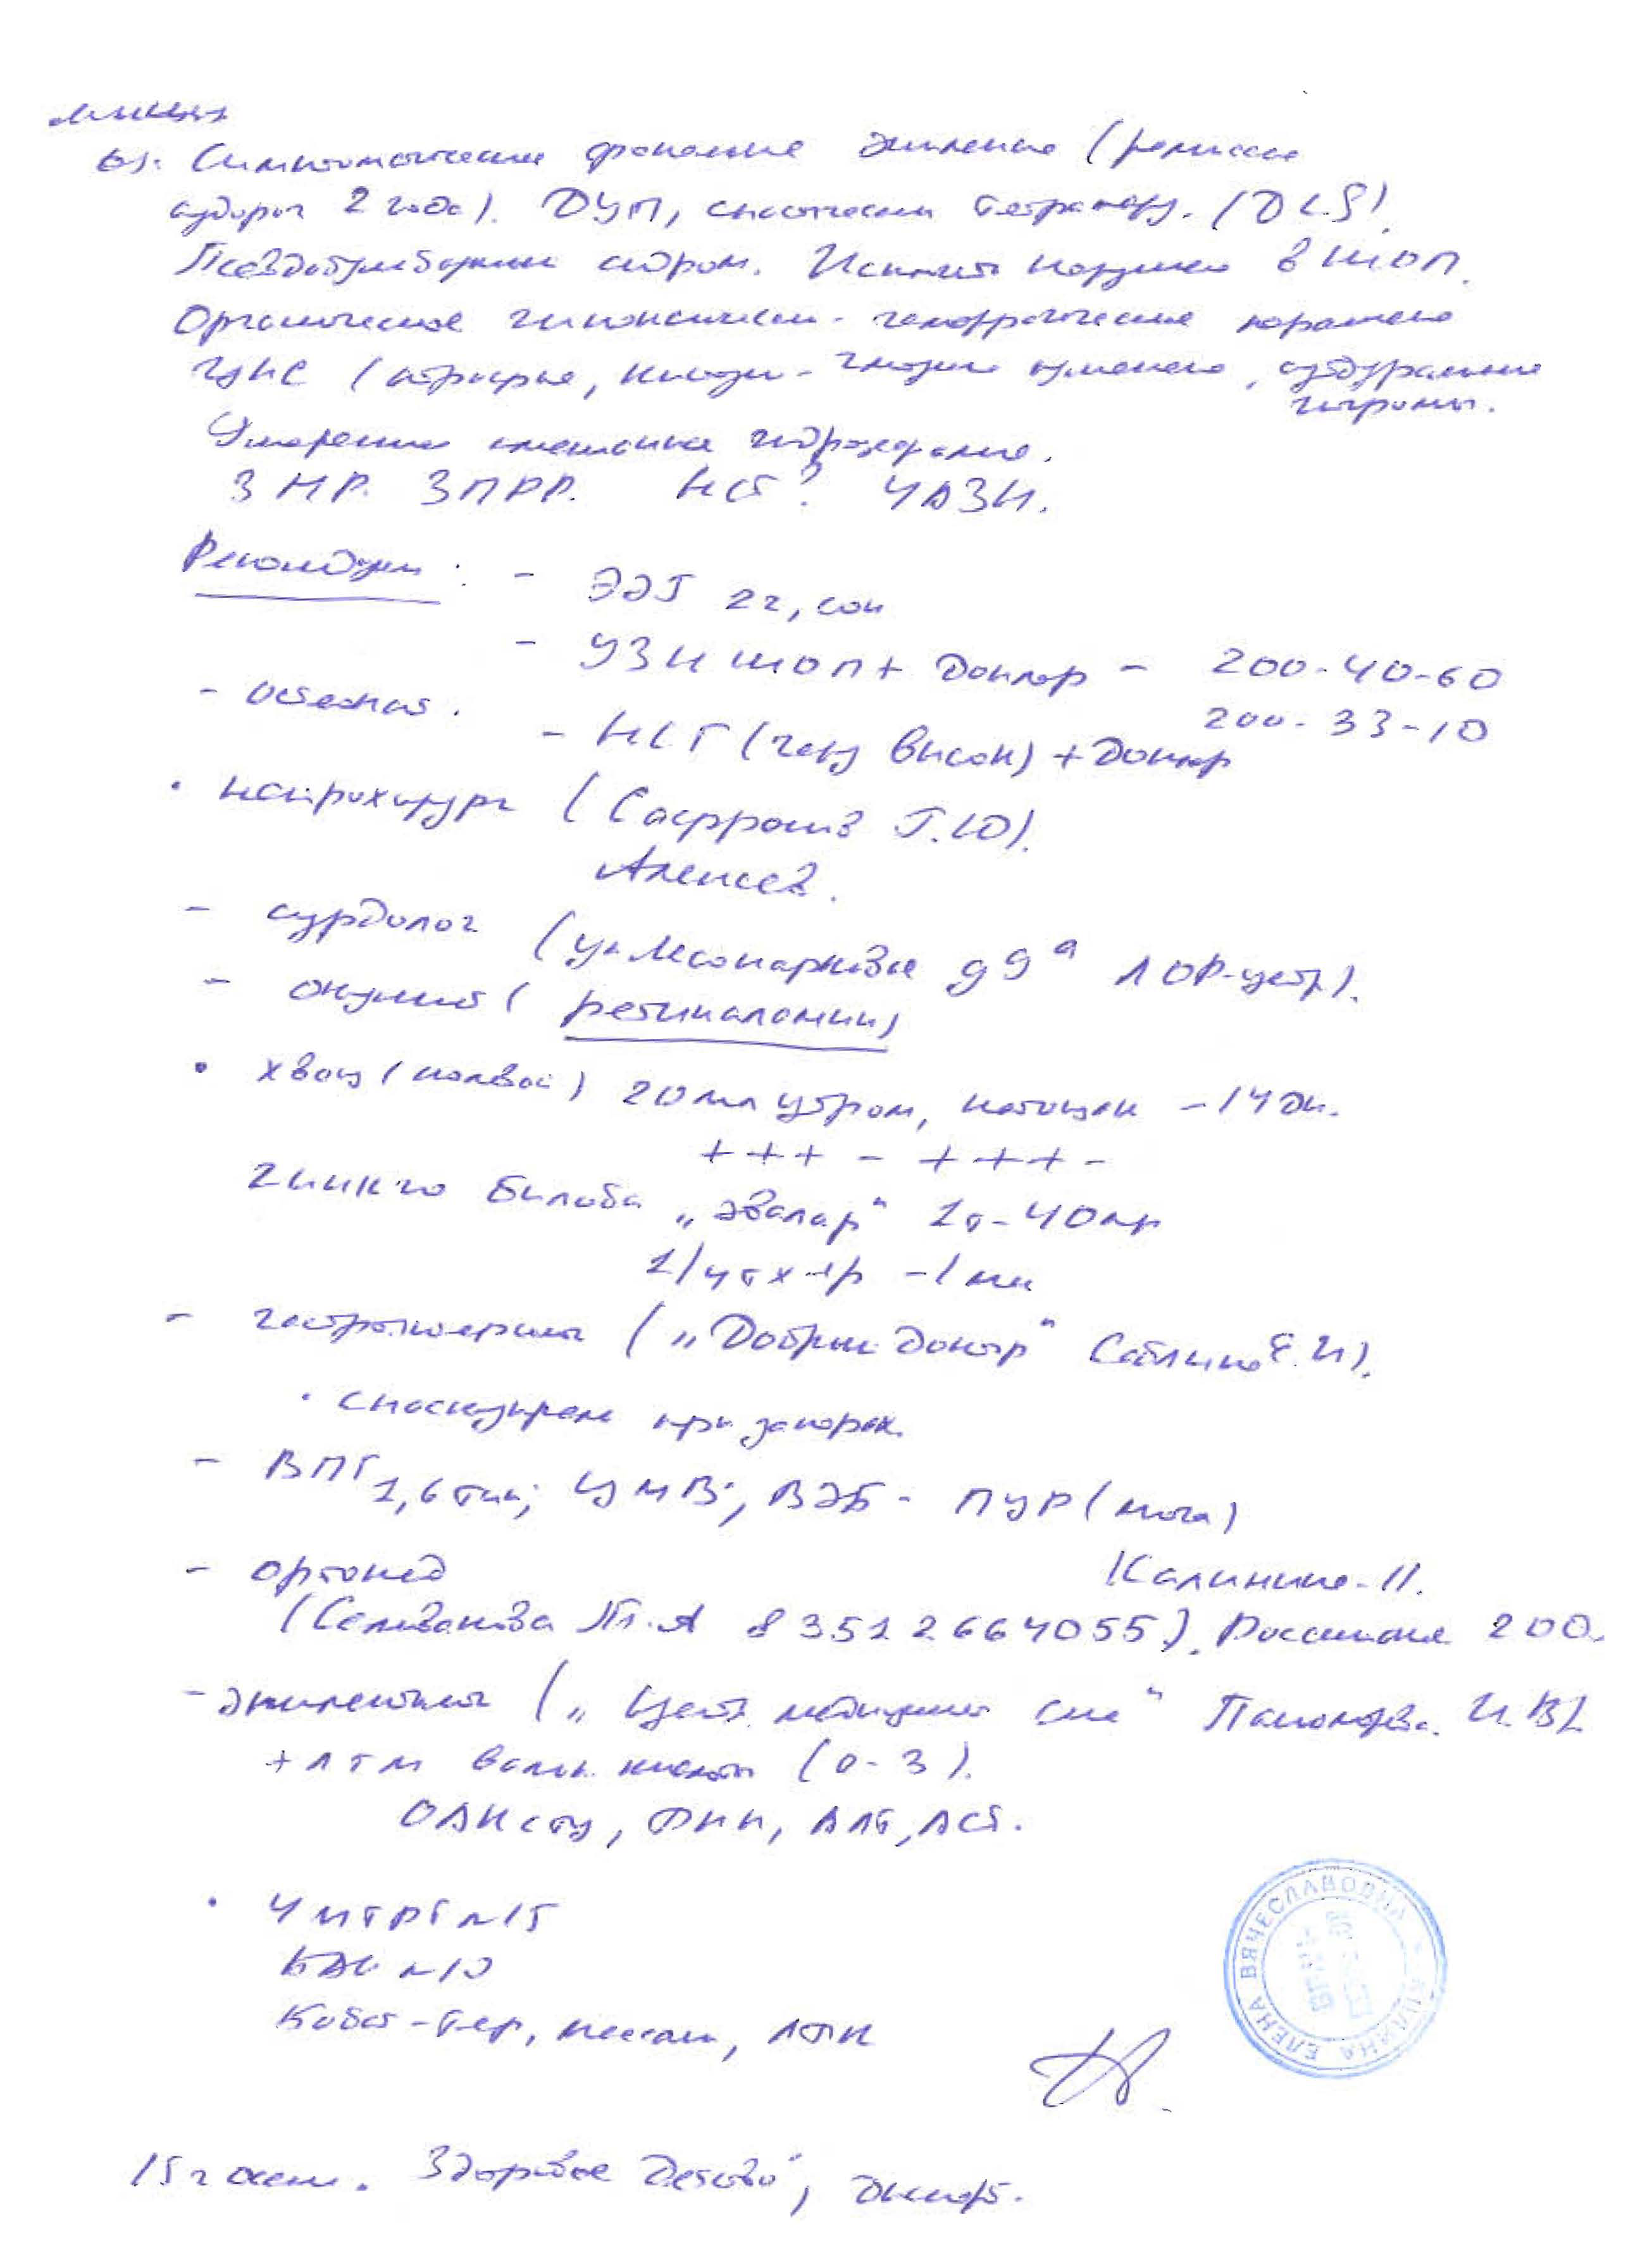 Ds: Симптоматическая фокальная эпилепсия (ремиссия
судорог 2 года). ДЦП, спастический тетрапарез. (D L S).
Псевдобульбарный синдром. Исключить нарушен в ШОП.
Органическое гипоксически-геморрагическое поражение
ЦНС (атрофия, кистозно-глиозные изменения, субдуральные
гигромы.
Умеренная смешанная гидроцефалия.
ЗМР. ЗПРР. НСТ? ЧАЗН.
Рекомендуем: - ЭЭГ 2ч, сон
- УЗИ ШОП + Доплер - 200-40-60
200-33-10
- остеопат.
- НСГ (через висок) + Доплер
• нейрохирург (Сафронов Г.Ю).
Алексеев.
- сурдолог (ул Лесопарковая 9 9а ЛОР-центр).
- окулист (ретиналамин)
• хвощ (полевой) 20мл утром, натощак - 14 дн.
+++ - +++ -
гинкго билоба „эвалар" 1т-40мг
1/4т х -1р - 1 мц
- гастроэнтеролог („Добрый доктор" Саблина Е.И).
• Спаскупрель при запорах.
- ВПГ 1,6 тип; ЦМВ, ВЭБ - ПЦР (моча)
- ортопед Калинина-11.
(Селиванова Л.А 83512664055). Россияне 200.
- эпилептолог („Центр медицины сна" Пономарева И.В).
+ ЛТМ вальп. кислоты (0-3).
ОАК с тр, АЛТ, АСТ.
• ЧМТРГ №15
БАК №10
Кобот-тер, массаж, ЛФК
15 г осень. Здоровое Детство",
ЕЛЕНА ВЯЧЕСЛАВОВНА
ВРАЧ